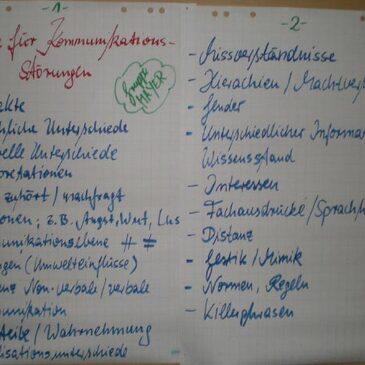 -1-
für Kommunikations-
störungen
Gruppe
MAYER
Unterschiede
Unterschiede
zuhört/nachfragt
z.B. Angst, Wut, Lus
munikationsebene # ≠
(Umwelteinflüsse)
Non-verbale/verbale
munikation
/Wahrnehmung
lisationsunterschiede
-2-
- Missverständnisse
- Hierachien/Machtver
- Gender
- Unterschiedlicher Informa
Wissensstand
- Interessen
- Fachausdrücke/Sprach
- Distanz
- Gestik/Mimik
- Normen, Regeln
- Killerphrasen